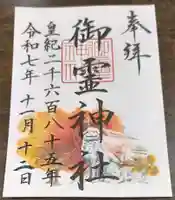 奉拝
御霊神社
皇紀二千六百八十五年
令和七年十一月十二日